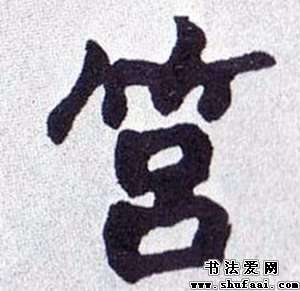 筥
书法爱网
www.shufaai.com